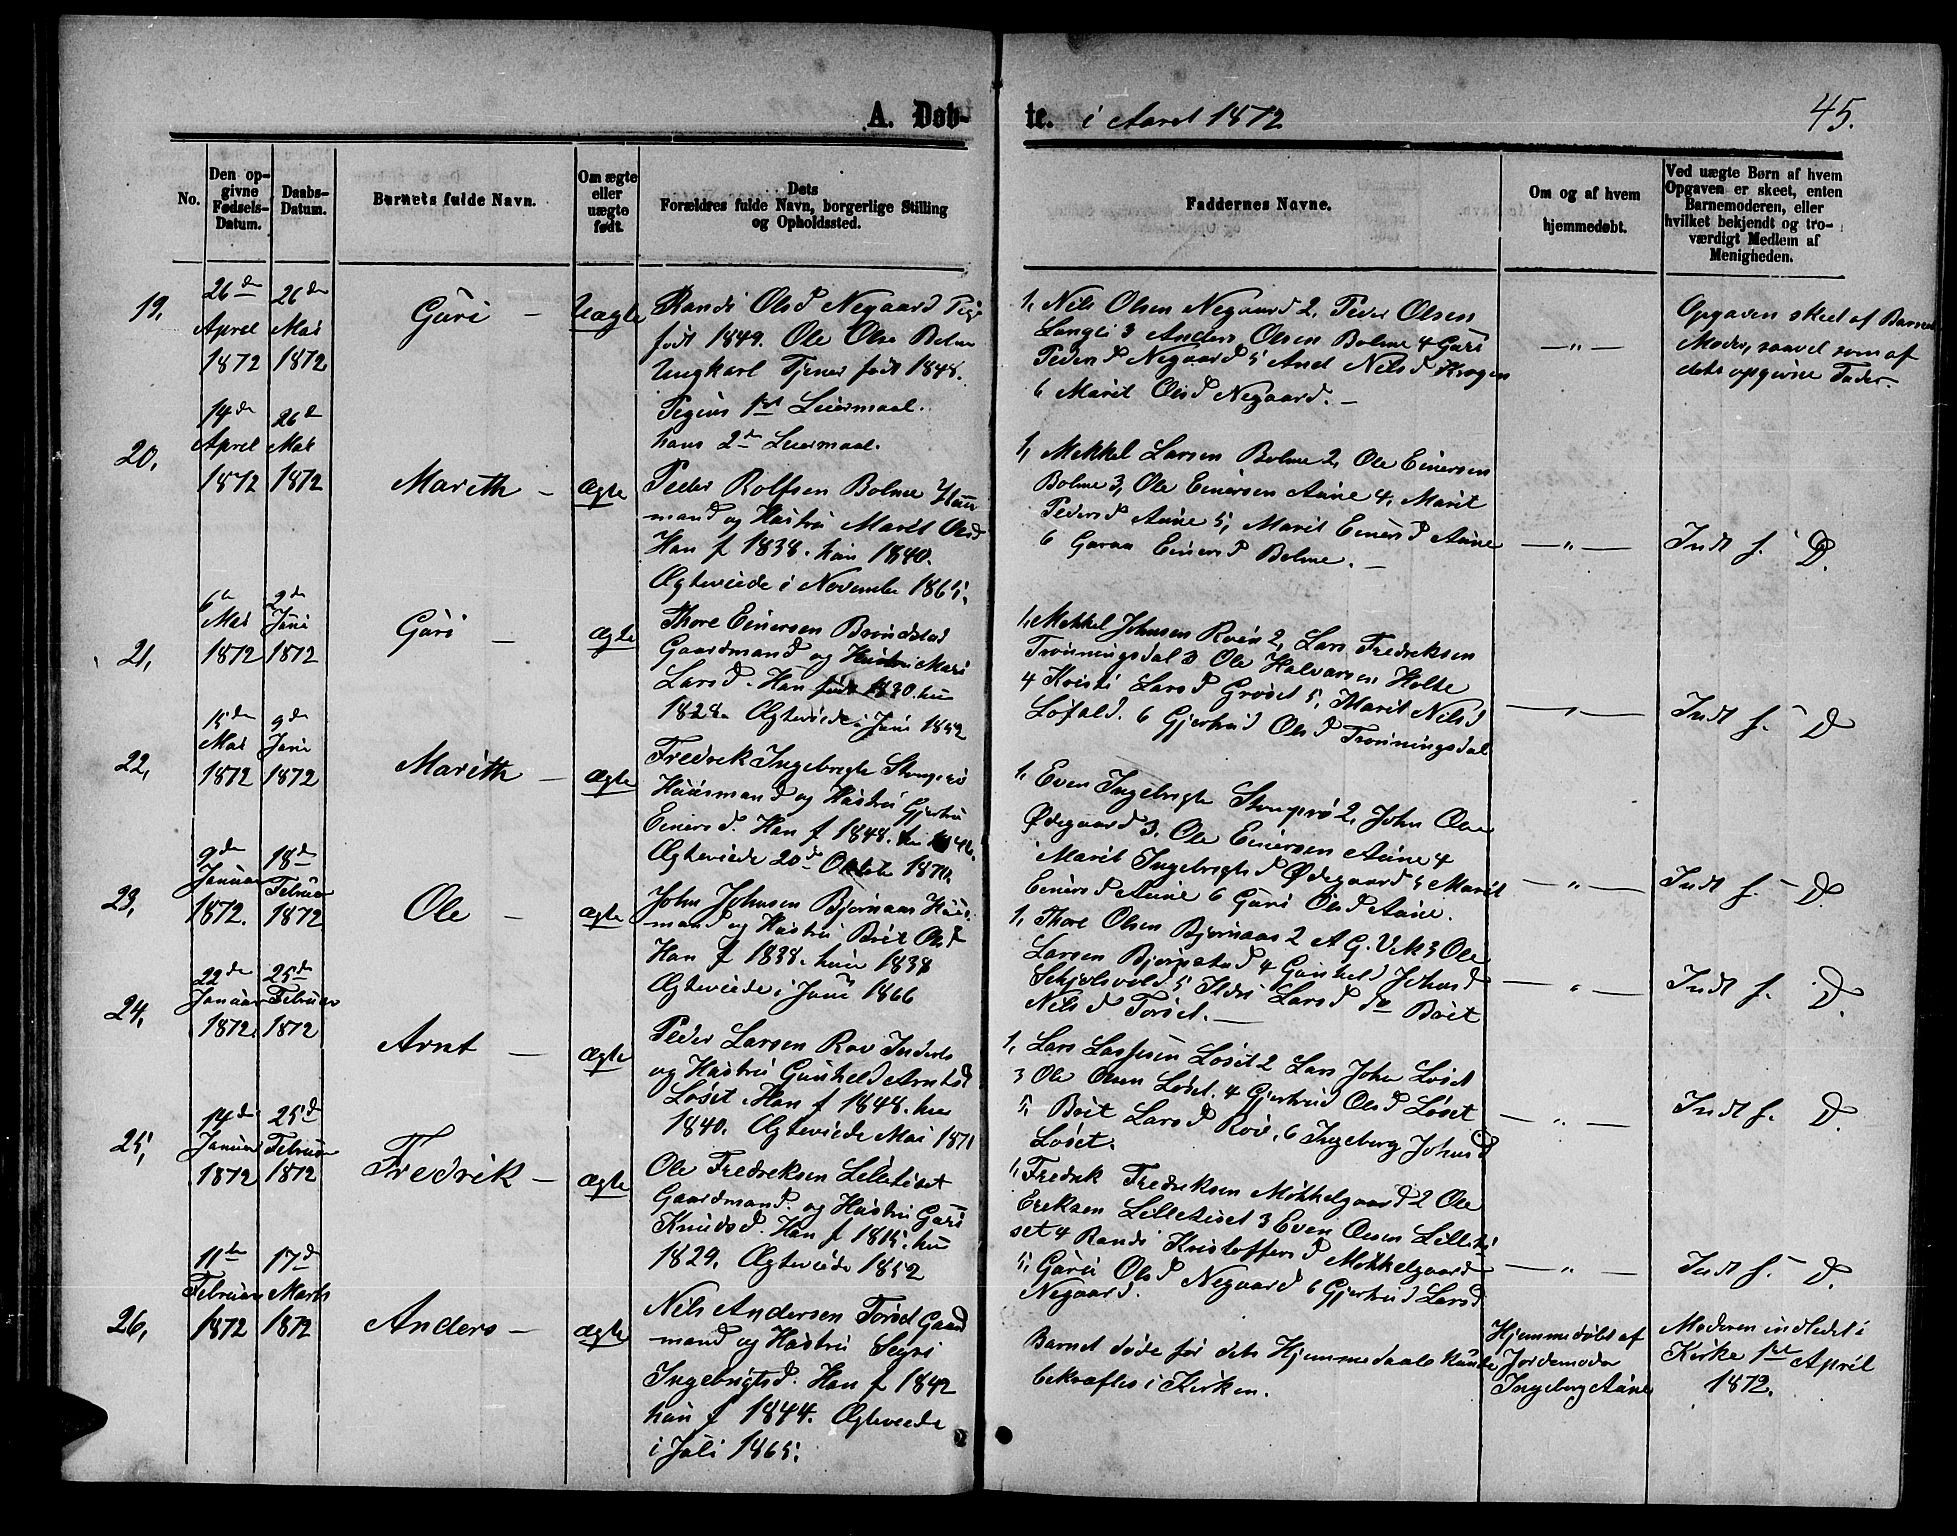 A. Døb-
te. i Aaret 1872
45.
No.
Den op-
givne
Fødsels-
Datum.
Daabs-
Datum.
Barnets fulde Navn.
Om ægte
eller
uægte
født.
Dets
Forældres fulde Navn, borgerlige Stilling
og Opholdssted.
Faddernes Navne.
Om og af hvem
hjemmedøbt.
Ved uægte Børn af hvem
Opgaven er skeet, enten
Barnemoderen, eller
hvilket bekjendt og tro-
værdigt Medlem af
Menigheden.
19,
26de
April
1872
26de
Mai
1872
Guri —
Uægte
Randi Olsd Negaard Pige
født 1849. Ole Olsen Bolme
Ungkarl Tjener født 1848.
Pigens 1ste Leiermaal.
hans 2de Leiermaal.
1, Nils Olsen Negaard 2, Peder Olsen
Langli 3 Anders Olsen Bolme 4 Guri
Pedersd Negaard 5 Ane Nilsd Krogen
6 Marit Olsd Negaard. —
—"—
Opgaven skeet af Barnets
Moder, saavel som af
dets opgivne Fader.
20,
14de
April
1872
26de
Mai
1872
Marith —
Ægte
Peder Rolfsen Bolme Huus-
mand og Hustru Marit Olsd
Han f 1838. hun 1840.
Ægteviede i November 1865,
1, Mekkel Larsen Bolme 2, Ole Einersen
Bolme 3, Ole Einersen Aune 4, Marit
Pedersd Aune 5, Marit Einersd Aune
6 Guraa Einersd Bolme. —
—"—
Indt f. D.
21,
6te
Mai
1872
9de
Juni
1872
Guri —
Ægte
Thore Einersen Brøndstad
Gaardmand og Hustru Mari
Larsd. Han født 1830. hun
1828. Ægteviede i Juni 1852
1, Mekkel Johnsen Roen 2, Lars Fredriksen
Trønningsdal 3 Ole Halvorsen Holte
4 Kristi Larsd Grøset 5, Marit Nilsd
Løfald. 6 Gjertrud Olsd Trønningsdal
—"—
Indt f. D
22,
15de
Mai
1872
9de
Juni
1872
Marith —
Ægte
Fredrik Ingebrigts
Huusmand og Hustru Gjertru
Einersd. Han f 1848. hun 1846.
Ægteviede 20de Oktob 1870.
1, Even Ingebrigts 2, John Olsen
Ødegaard 3, Ole Einersen Aune 4
Marit Ingebrigtsd Ødegaard 5 Marit
Einersd Aune 6 Guri Olsd Aune.
—"—
Indt f. D.
23,
9de
Januar
1872.
18de
Februar
1872
Ole —
Ægte
John Johnsen Bjørnaas Huus-
mand og Hustru Brit Olsd
Han f 1838. hun 1838
Ægteviede i Juni 1866
1, Thore Olsen Bjørnaas 2 A G. Vik 3 Ole
Larsen Bjørnstad 4 Gunhild Johnsd
Schjølsvold 5 Ildri Larsd do Brit
Nilsd Torset. —
—"—
Indt f. D.
24,
22de
Januar
1872
25de
Februar
1872
Arnt —
Ægte
Peder Larsen Rov Inderst
og Hustru Gunhild Arntsd
Løset. Han f 1848. hun
1840. Ægteviede Mai 1871
1, Lars Larssen Løset 2 Lars John Løset
3 Ole Olsen Løset. 4 Gjertrud Olsd Løset
5, Brit Larsd Rov, 6 Ingeborg Johnsd
Løset.
—"—
Indt f. D.
25,
14de
Januar
1872
25de
Februar
1872
Fredrik —
Ægte
Ole Fredriksen Lilletiset
Gaardmand. og Hustru Guri
Knudsd. Han f 1815. hun
1829. Ægteviede 1852
1, Fredrik Fredriksen Mökkelgaard 2 Ole
Eriksen Lilletiset 3 Even Olsen Lilleti
set 4 Randi Kristoffersd Mökkelgaard
5, Guri Olsd Negaard 6 Gjertrud Larsd
Negaard.
—"—
Indt f. D.
26,
11te
Februar
1872
17de
Marts
1872
Anders —
Ægte
Nils Andersen Torset Gaard
mand og Hustru Segri
Ingebrigtsd. Han f 1842
hun f 1844. Ægteviede
i Juli 1865,
Barnet døde før dets Hjemmedaab kunde
bekræftes i Kirken.
Hjemmedøbt af
Jordemoder
Ingeborg Aune
Moderen indledet i
Kirke 1ste April
1872.